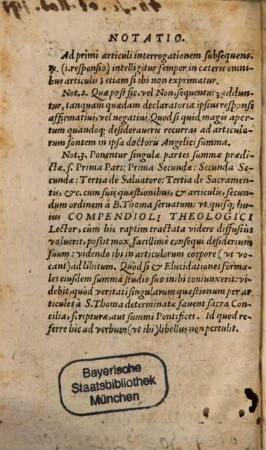 NOTATIO.
Ad primi articuli interrogationem subsequens
(1. responsio) intelligitur semper in cæteris omni
bus articulis; etiam si ibi non exprimatur.
Not. 2. Quæ post sic, vel Non sequentur; adduntur,
tanquam quædam declaratoria ipsius responsi
affirmatiui, vel negatiui. Quod si quid magis aper
tum quandoq; desideraueris recurras ad articulo
rum fontem in ipsa doctoris Angelici summa.
Not. 3. Ponentur singulæ partes summæ prædi
ctæ, s. Prima Pars; Prima Secundæ: Secunda Se-
cundæ: Tertia de Saluatore: Tertia de Sacramen-
tis, &c. cum suis quæstionibus, & articulis, secun-
dum ordinem à B. Thoma seruatum: vt quisq; hu-
ius COMPENDIOLI THEOLOGICI
Lector, cum hic raptim tractata videre diffusius
voluerit, possit mox facillimè consequi desiderium
suum: videndo ibi in articulorum corpore (vt vo-
cant) ad libitum. Quod si & Elucidationes forma-
les eiusdem summæ studio suo inibi coniunxerit: vi-
debit, quòd veritati singularum quæstionum per ar
ticulos à S. Thoma determinatæ fauent sacra Con-
cilia, scripturæ, aut summi Pontifices. Id quod re-
ferre hic ad verbum (vt ibi) libellus non pertulit.
Bayerische
Staatsbibliothek
München